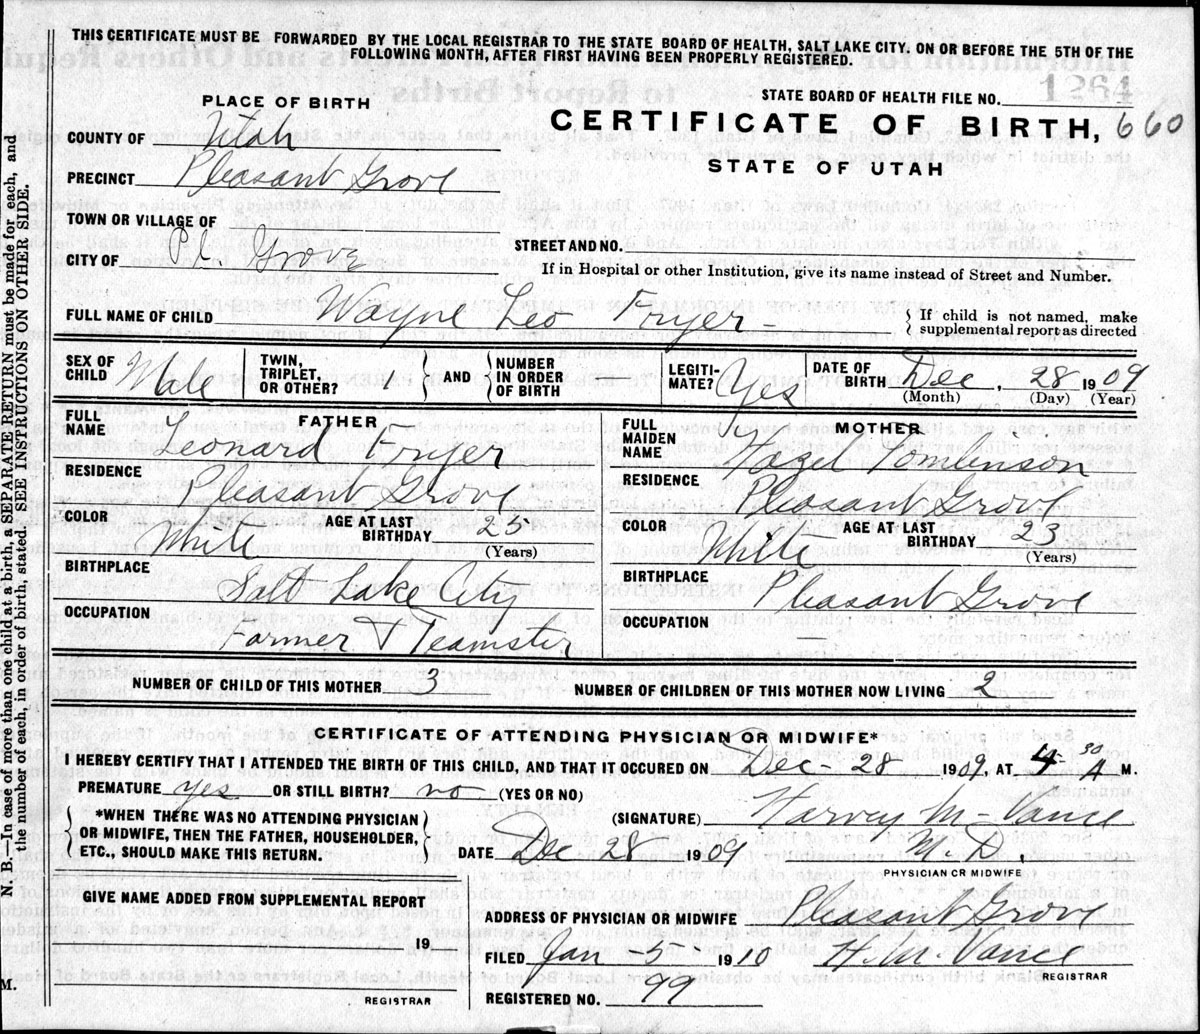 THIS CERTIFICATE MUST BE FORWARDED BY THE LOCAL REGISTRAR TO THE STATE BOARD OF HEALTH, SALT LAKE CITY. ON OR BEFORE THE 5TH OF THE
FOLLOWING MONTH, AFTER FIRST HAVING BEEN PROPERLY REGISTERED.
STATE BOARD OF HEALTH FILE NO. 1264
PLACE OF BIRTH
CERTIFICATE OF BIRTH, 660
STATE OF UTAH
COUNTY OF Utah
PRECINCT Pleasant Grove
TOWN OR VILLAGE OF
CITY OF Pl Grove
STREET AND NO.
If in Hospital or other Institution, give its name instead of Street and Number.
FULL NAME OF CHILD Wayne Leo Fryer - { If child is not named, make
supplemental report as directed
SEX OF CHILD Male TWIN, TRIPLET, OR OTHER? 1 } AND { NUMBER IN ORDER OF BIRTH LEGITI-MATE? Yes DATE OF BIRTH Dec. 28 1909
(Month) (Day) (Year)
FATHER
FULL NAME Leonard Fryer
RESIDENCE Pleasant Grove
COLOR White AGE AT LAST BIRTHDAY 25
(Years)
BIRTHPLACE Salt Lake City
OCCUPATION Farmer & Teamster
MOTHER
FULL MAIDEN NAME Hazel Tomlinson
RESIDENCE Pleasant Grove
COLOR White AGE AT LAST BIRTHDAY 23
(Years)
BIRTHPLACE Pleasant Grove
OCCUPATION —
NUMBER OF CHILD OF THIS MOTHER 3 NUMBER OF CHILDREN OF THIS MOTHER NOW LIVING 2
CERTIFICATE OF ATTENDING PHYSICIAN OR MIDWIFE*
I HEREBY CERTIFY THAT I ATTENDED THE BIRTH OF THIS CHILD, AND THAT IT OCCURED ON Dec - 28 1909, AT 4 30 A M.
PREMATURE yes OR STILL BIRTH? no (YES OR NO)
{ *WHEN THERE WAS NO ATTENDING PHYSICIAN
OR MIDWIFE, THEN THE FATHER, HOUSEHOLDER,
ETC., SHOULD MAKE THIS RETURN. }
(SIGNATURE) Harvey M - Vance
DATE Dec 28 1909 M. D.
PHYSICIAN OR MIDWIFE
GIVE NAME ADDED FROM SUPPLEMENTAL REPORT
19
REGISTRAR
ADDRESS OF PHYSICIAN OR MIDWIFE Pleasant Grove
FILED Jan - 5 - 1910 H. M. Vance
REGISTRAR
REGISTERED NO. 99
N. B.—In case of more than one child at a birth, a SEPARATE RETURN must be made for each, and
the number of each, in order of birth, stated. SEE INSTRUCTIONS ON OTHER SIDE.
M.